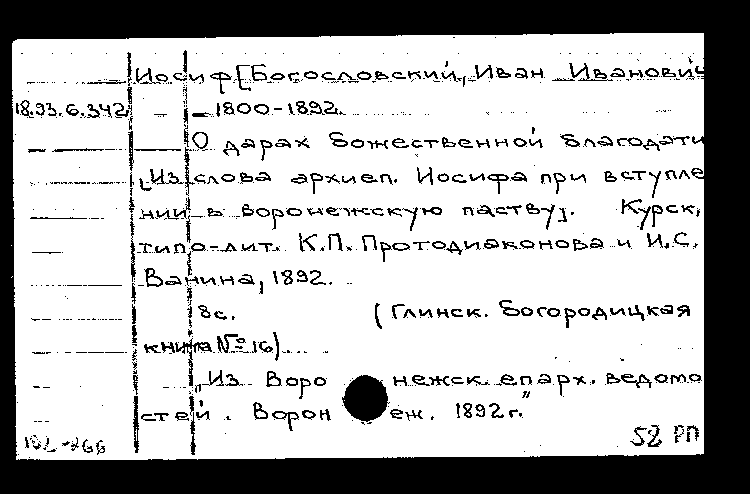 Иосиф [Богословский, Иван Иванович
18.93.6.342 – 1800-1892.
О дарах божественной благодати
[Из слова архиеп. Иосифа при вступле
нии в воронежскую паству]. Курск,
типо-лит. К.П. Протодиаконова и И.С.
Ванина, 1892.
8с. (Глинск. Богородицкая
книга № 16)
"Из Воронежск. епарх. ведомо
стей. Воронеж. 1892 г."
58 РП